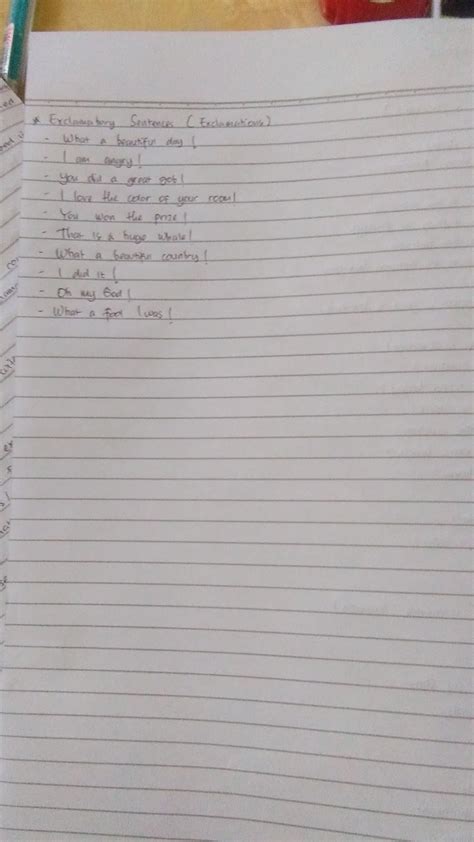 * Exclamatory Sentences (Exclamations)
- What a beautiful day!
- I am angry!
- You did a great got!
- I love the color of your room!
- You won the prize!
- That is a huge whale!
- What a beautiful country!
- I did it!
- Oh my God!
- What a fool I was!